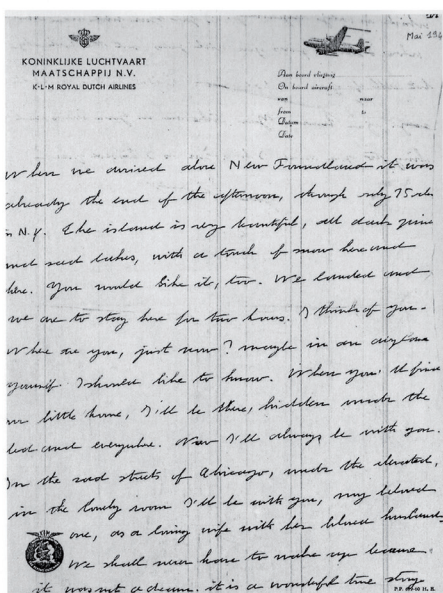 Mai 194
KONINKLIJKE LUCHTVAART
MAATSCHAPPIJ N.V.
K·L·M ROYAL DUTCH AIRLINES
Aan boord vliegtuig
On board aircraft
van naar
from to
Datum
Date
When we arrived above New Foundland it was
already the end of the afternoon, though only
in N.Y. The island is very beautiful, all dark pine
and sad lakes, with a touch of snow here and
there. You would like it, too. We landed and
we are to stay here for two hours. I think of you.
Where are you, just now? maybe in an airplane
yourself. I should like to know. When you'll find
our little home, I'll be there, hidden under the
bed and everywhere. Now I'll always be with you.
In the sad streets of Chicago, under the elevated,
in the lonely room I'll be with you, my beloved
one, as a loving wife with her beloved husband
We shall never have to wake up because
it was not a dream. it is a wonderful true story
KLM